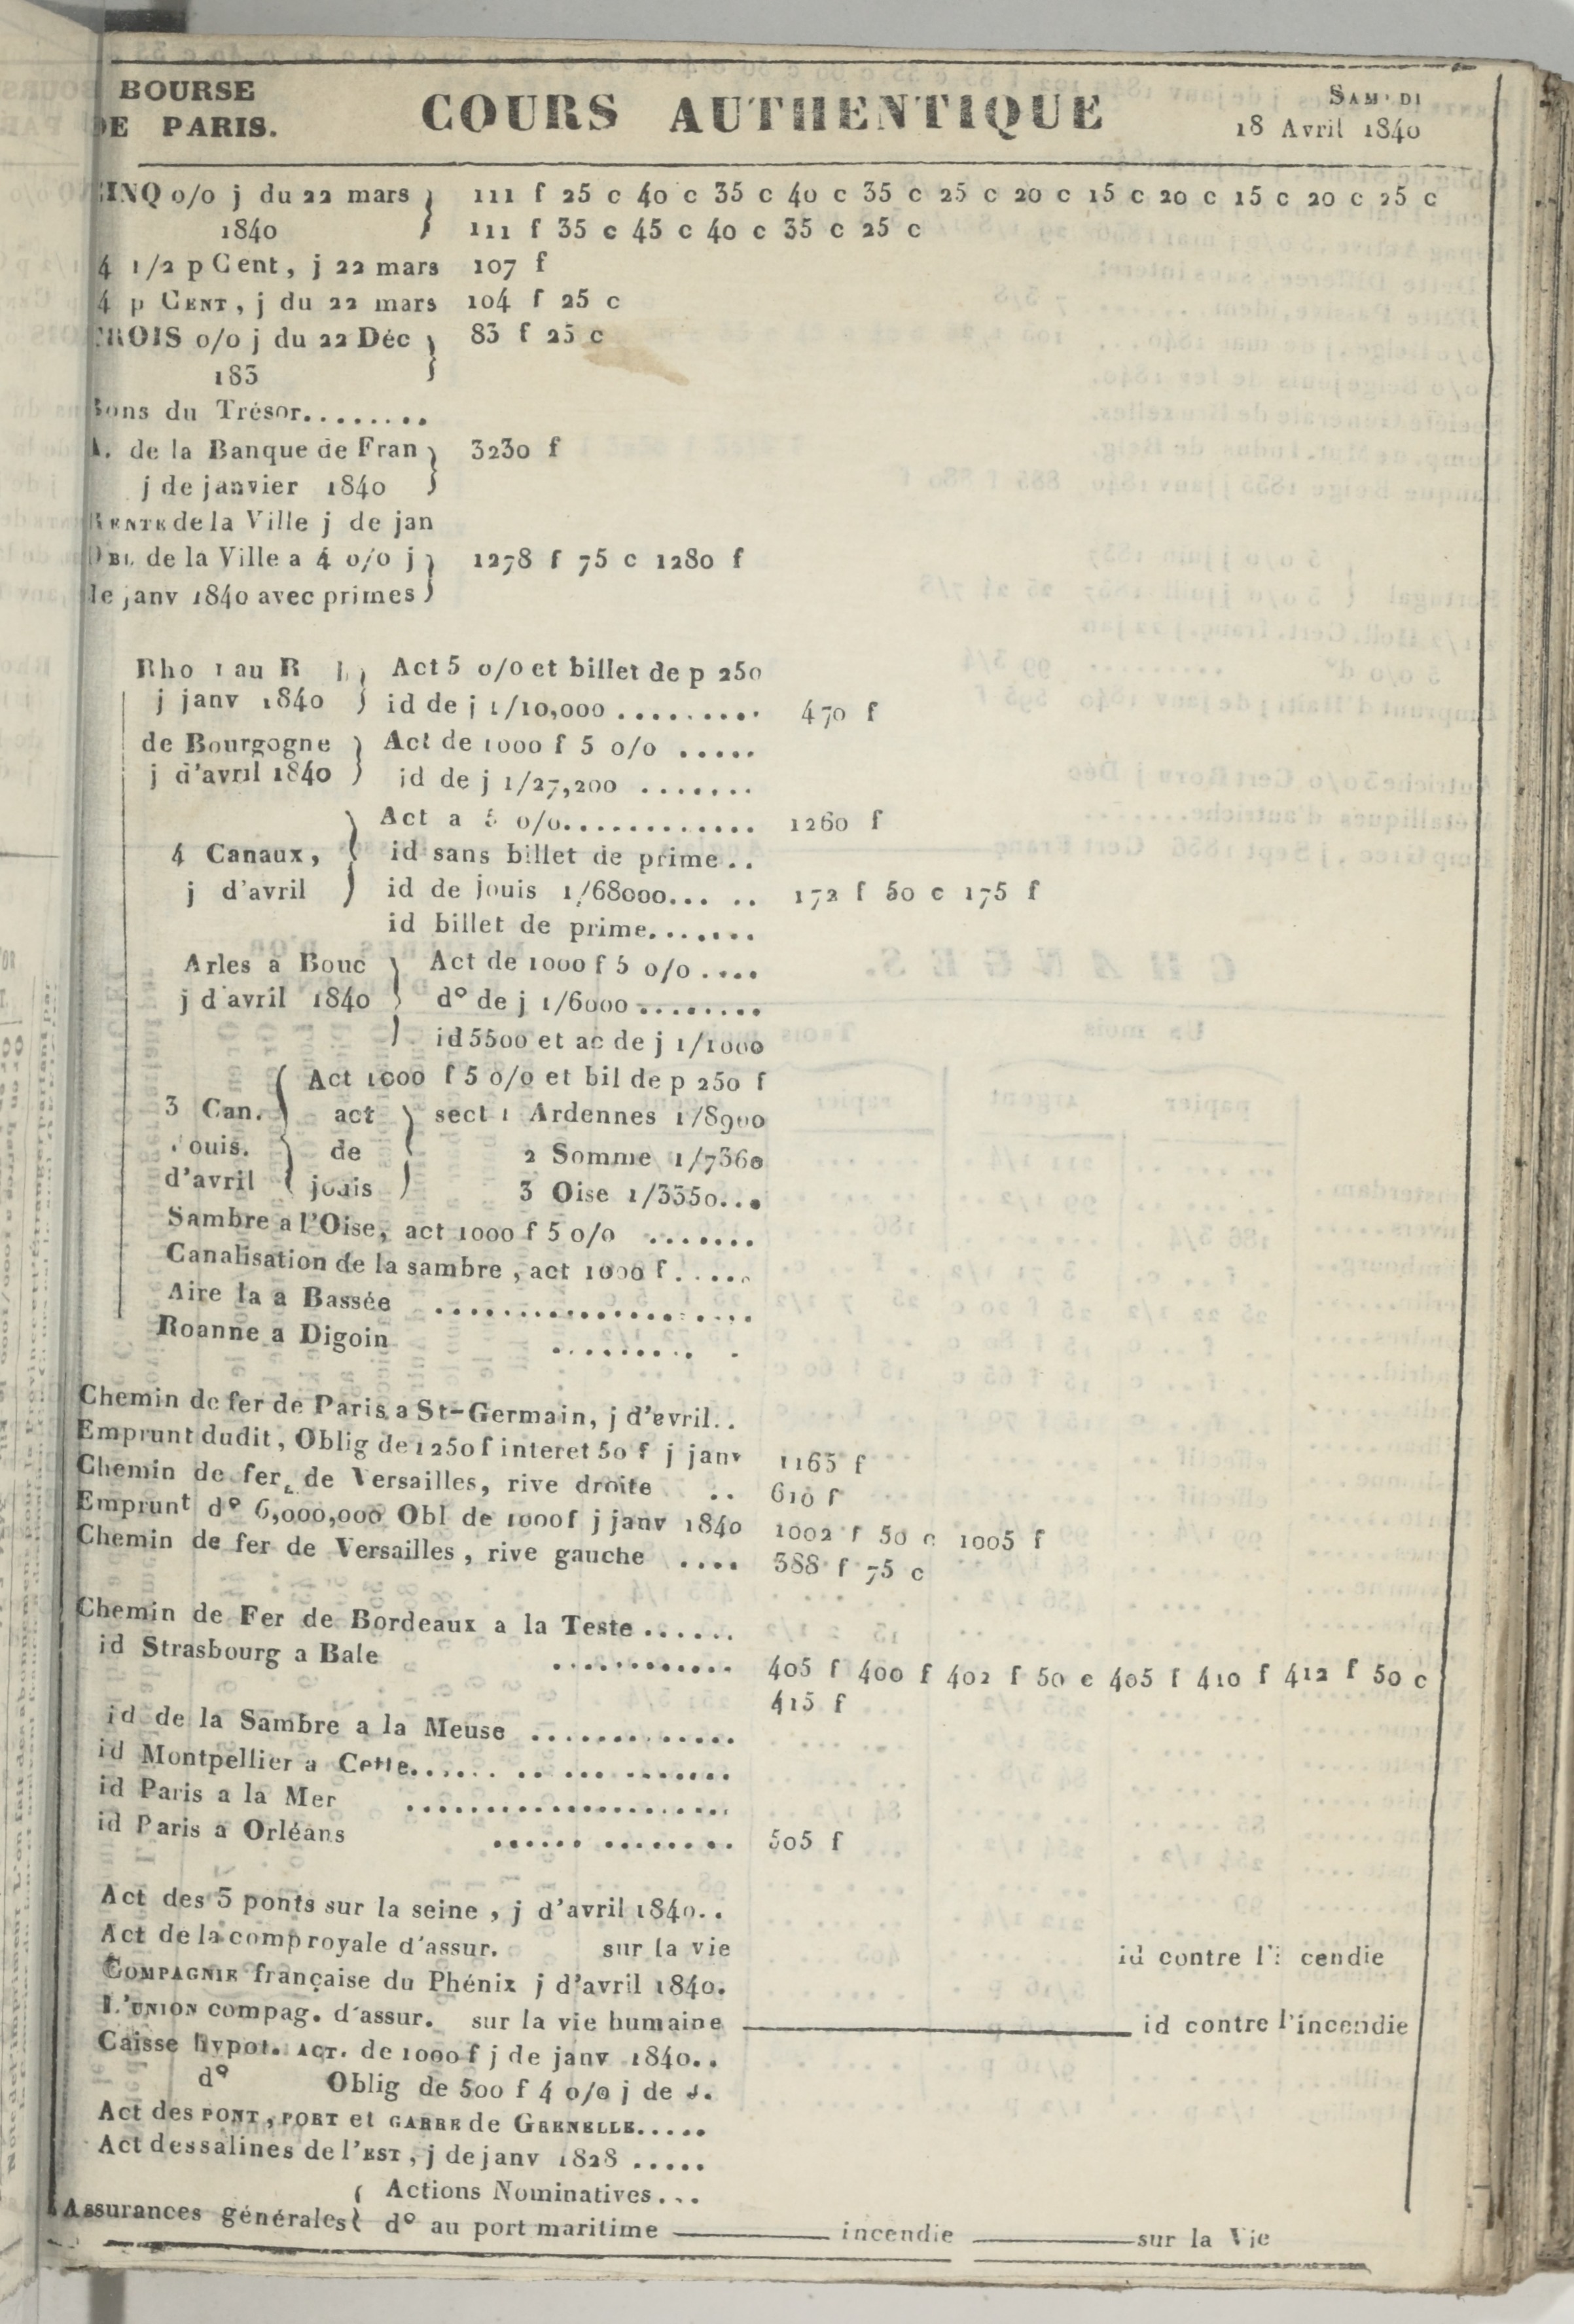 BOURSE
DE PARIS.
COURS AUTHENTIQUE
SAMEDI
18 Avril 1840
CINQ o/o j du 22 mars 111 f 25 c 40 c 35 c 40 c 35 c 25 c 20 c 15 c 20 c 15 c 20 c 25 c
1840 111 f 35 c 45 c 40 c 35 c 25 c
4 1/2 p Cent, j 22 mars 107 f
4 p CENT, j du 22 mars 104 f 25 c
TROIS o/o j du 22 Déc 83 f 25 c
183
Bons du Trésor........
A. de la Banque de Fran 3230 f
j de janvier 1840
RENTE de la Ville j de jan
OBL de la Ville a 4 o/o j 1278 f 75 c 1280 f
de janv 1840 avec primes
Rho 1 au R Act 5 o/o et billet de p 250
j janv 1840 id de j 1/10,000 ......... 470 f
de Bourgogne Act de 1000 f 5 o/o .....
j d'avril 1840 id de j 1/27,200 .......
Act a 5 o/o............ 1260 f
4 Canaux, id sans billet de prime..
j d'avril id de jouis 1/68000... .. 172 f 50 c 175 f
id billet de prime.......
Arles a Bouc Act de 1000 f 5 o/o ....
j d'avril 1840 d° de j 1/6000 ........
id 5500 et ac de j 1/1000
Act 1000 f 5 o/o et bil de p 250 f
3 Can. act sect 1 Ardennes 1/8900
jouis. de 2 Somme 1/7360
d'avril jouis 3 Oise 1/3350...
Sambre a l'Oise, act 1000 f 5 o/o .......
Canalisation de la sambre, act 1000 f.....
Aire la a Bassée ....................
Roanne a Digoin ......... .
Chemin de fer de Paris a St-Germain, j d'avril..
Emprunt dudit, Oblig de 1250 f interet 50 f j janv 1165 f
Chemin de fer de Versailles, rive droite .. 610 f
Emprunt d° 6,000,000 Obl de 1000f j janv 1840 1002 f 50 c 1005 f
Chemin de fer de Versailles, rive gauche .... 388 f 75 c
Chemin de Fer de Bordeaux a la Teste ......
id Strasbourg a Bale ............ 405 f 400 f 402 f 50 c 405 f 410 f 412 f 50 c
415 f
id de la Sambre a la Meuse .............
id Montpellier a Cette...... .. ... .......
id Paris a la Mer .....................
id Paris a Orléans ...... ........ 505 f
Act des 3 ponts sur la seine, j d'avril 1840..
Act de la comp royale d'assur. sur la vie id contre l'i cendie
COMPAGNIE française du Phénix j d'avril 1840.
L'UNION compag. d'assur. sur la vie humaine id contre l'incendie
Caisse hypot. ACT. de 1000 f j de janv 1840..
d° Oblig de 500 f 4 o/o j de J.
Act des PONT, PORT et GARRE de GRENELLE.....
Act des salines de l'EST, j de janv 1828 .....
Actions Nominatives...
Assurances générales d° au port maritime incendie sur la Vie